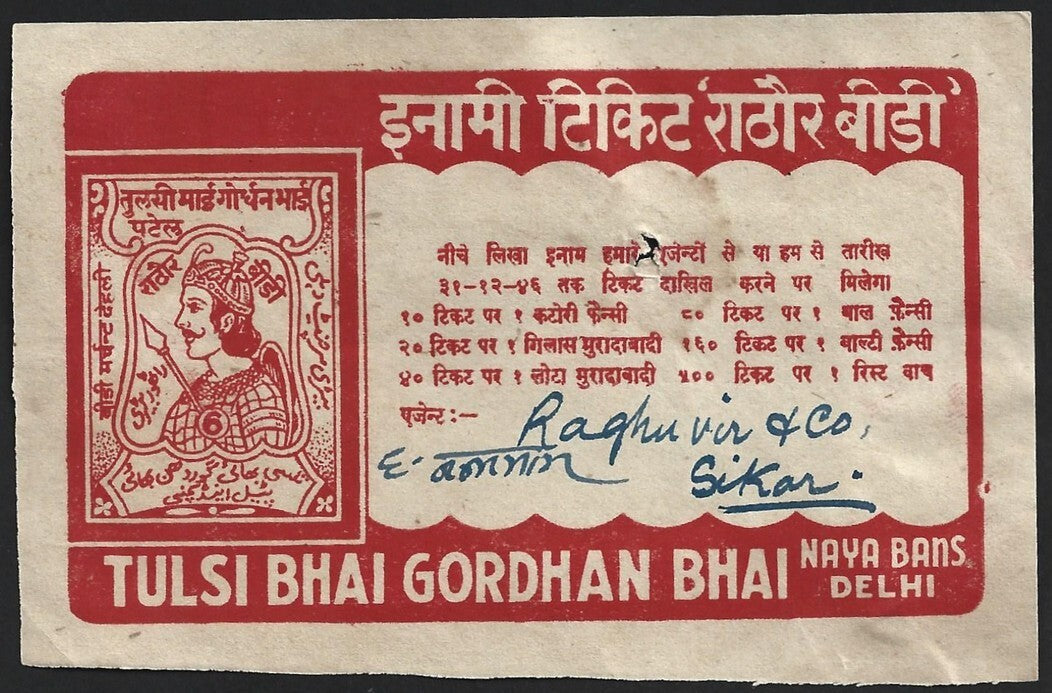 इनामी टिकिट 'राठौर बीडी'
तुलसी भाई गोर्धन भाई
पटेल
राठौर बीडी
बीडी मर्चन्ट देहली
6
नीचे लिखा इनाम हमारे एजेन्टों से या हम से तारीख
३१-१२-४६ तक टिकट दाखिल करने पर मिलेगा
१० टिकट पर १ कटोरी फ़ैन्सी ८० टिकट पर १ बाल फ़ैन्सी
२० टिकट पर १ गिलास मुरादाबादी १६० टिकट पर १ बाल्टी फ़ैन्सी
४० टिकट पर १ लोटा मुरादाबादी ५०० टिकट पर १ रिस्ट वाच
एजेन्ट :—
Raghuvir & Co,
Sikar.
TULSI BHAI GORDHAN BHAI NAYA BANS
DELHI